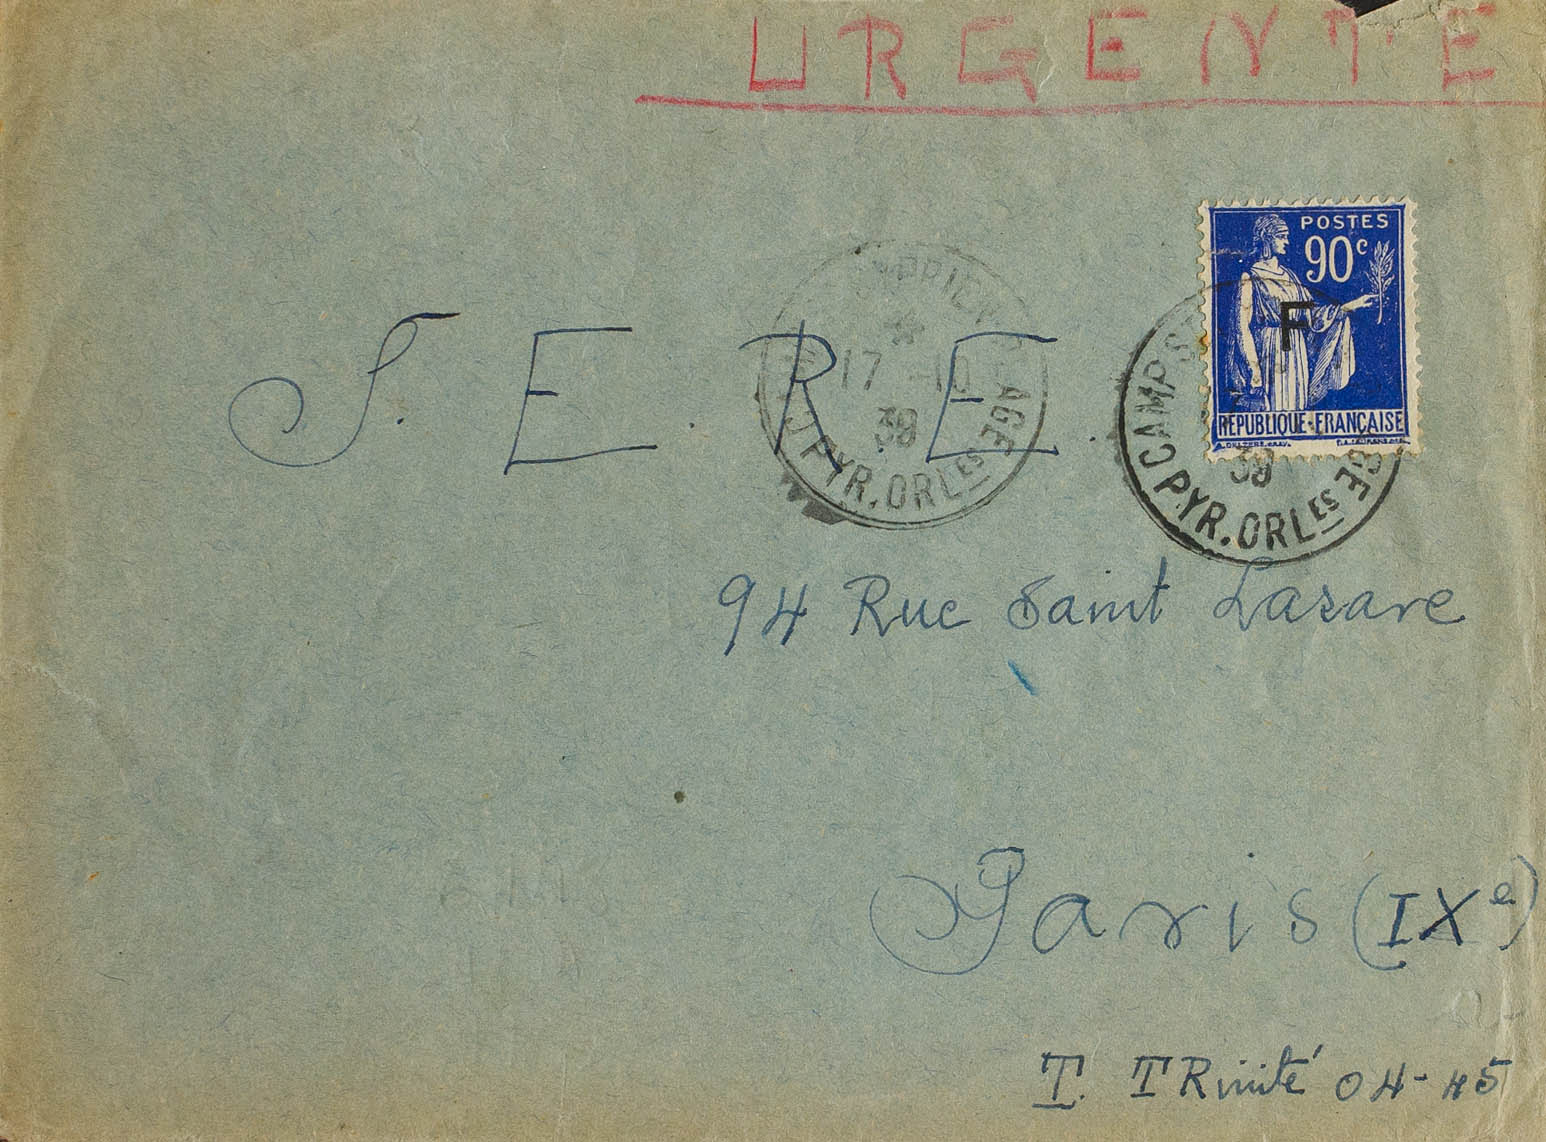 URGENTE
POSTES
90c
F
REPUBLIQUE FRANÇAISE
17 -10
39
PYR.ORLES
CAMP
39
PYR.ORLES
S. E. R. E.
94 Rue Saint Lazare
Paris (IXe)
T. TRinité 04-45